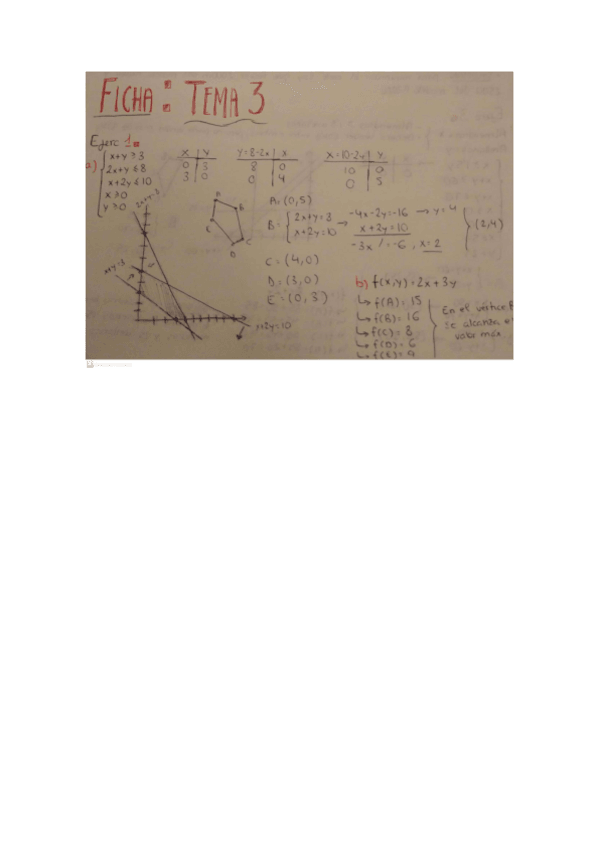 FICHA: TEMA 3
Ejerc 1.
a) x+y ≥ 3
2x+y ≤ 8
x+2y ≤ 10
x ≥ 0
y ≥ 0
x | y
0 | 3
3 | 0
y=8-2x | x
8 | 0
0 | 4
x=10-2y | y
10 | 0
0 | 5
2x+y=8
x+y=3
x+2y=10
A
B
C
D
A=(0,5)
B= 2x+y=8
x+2y=10
→ -4x-2y=-16 → y=4
x+2y=10
-3x / = -6, x=2
(2,4)
C=(4,0)
D=(3,0)
E=(0,3)
b) f(x,y)=2x+3y
↳ f(A)=15
↳ f(B)=16
↳ f(C)=8
↳ f(D)=6
↳ f(E)=9
En el vértice B
se alcanza el
valor máx.